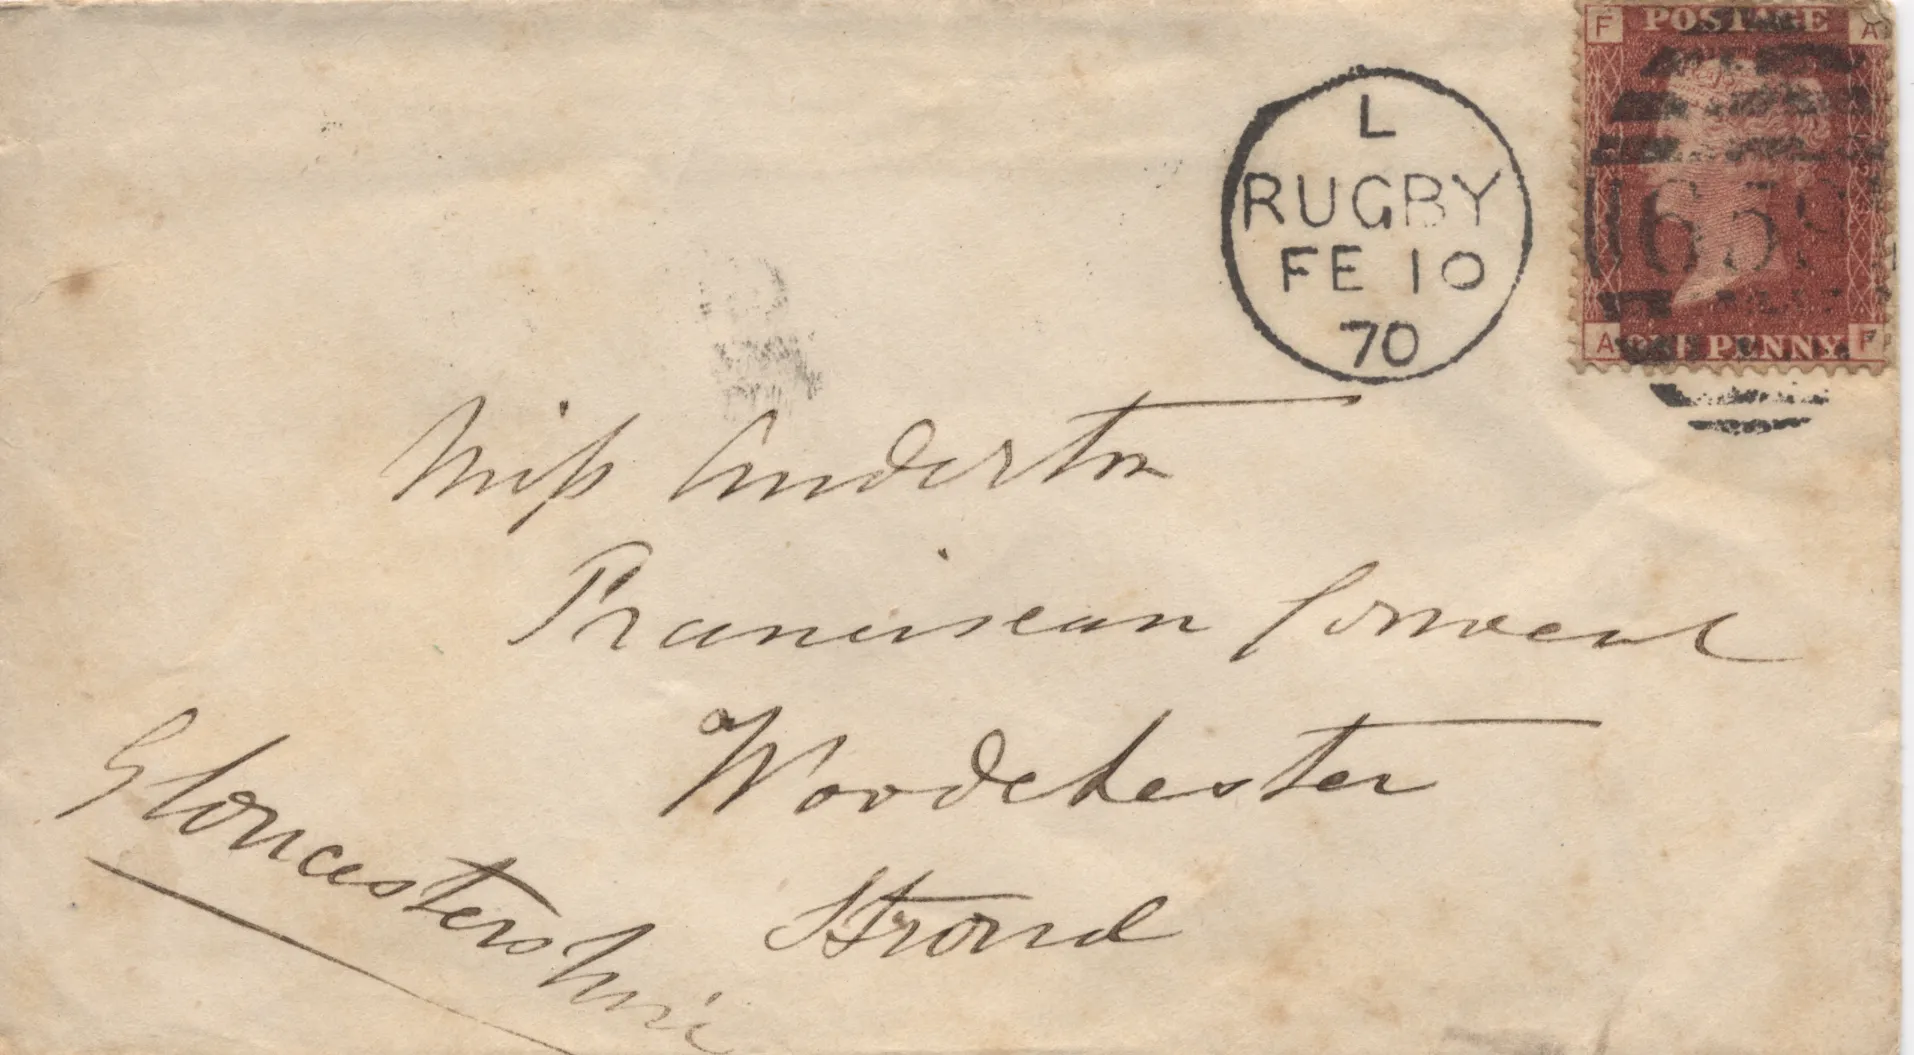 F POSTAGE A
L
RUGBY
FE 10
70
659
A ONE PENNY F
Miss Anderton
Franciscan Convent
Woodchester
Stroud
Gloucestershire